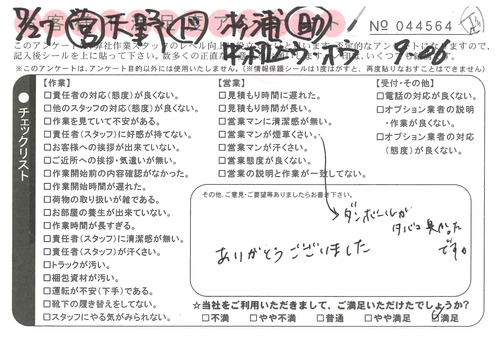 8/27 営 天野 下 杉浦 助
お客様 アンケート
No 044564
このアンケートは弊社作業スタッフのレベル向上
記入後シールを上に貼って下さい。
9:06
(※このアンケートは、アンケート目的以外には使用いたしません。(※情報保護シールは1度はがすと、再度貼りなおすことはできません)
チェックリスト
【作業】
□責任者の対応(態度)が良くない。
□他のスタッフの対応(態度)が良くない。
□作業を見ていて不安がある。
□責任者(スタッフ)に好感が持てない。
□お客様への挨拶が出来ていない。
□ご近所への挨拶・気遣いが無い。
□作業開始前の内容確認がなかった。
□作業開始時間が遅れた。
□荷物の取り扱いが雑である。
□お部屋の養生が出来ていない。
□作業時間が長すぎる。
□責任者(スタッフ)に清潔感が無い。
□責任者(スタッフ)が汗くさい。
□トラックが汚い。
□梱包資材が汚い。
□運転が不安(下手)である。
□靴下の履き替えをしてない。
□スタッフにやる気がみられない。
【営業】
□見積もり時間に遅れた。
□見積もり時間が長い。
□営業マンに清潔感が無い。
□営業マンが煙草くさい。
□営業マンが汗くさい。
□営業態度が良くない。
□営業の説明と作業が一致してない。
【受付・その他】
□電話の対応が良くない。
□オプション業者の説明・作業が良くない。
□オプション業者の対応(態度)が良くない。
その他、ご意見・ご要望等ありましたらお書き下さい。
ダンボールが
タバコ臭かった
です。
ありがとうございました
☆当社をご利用いただきまして、ご満足いただけたでしょうか?
□不満 □やや不満 □普通 □やや満足 □満足